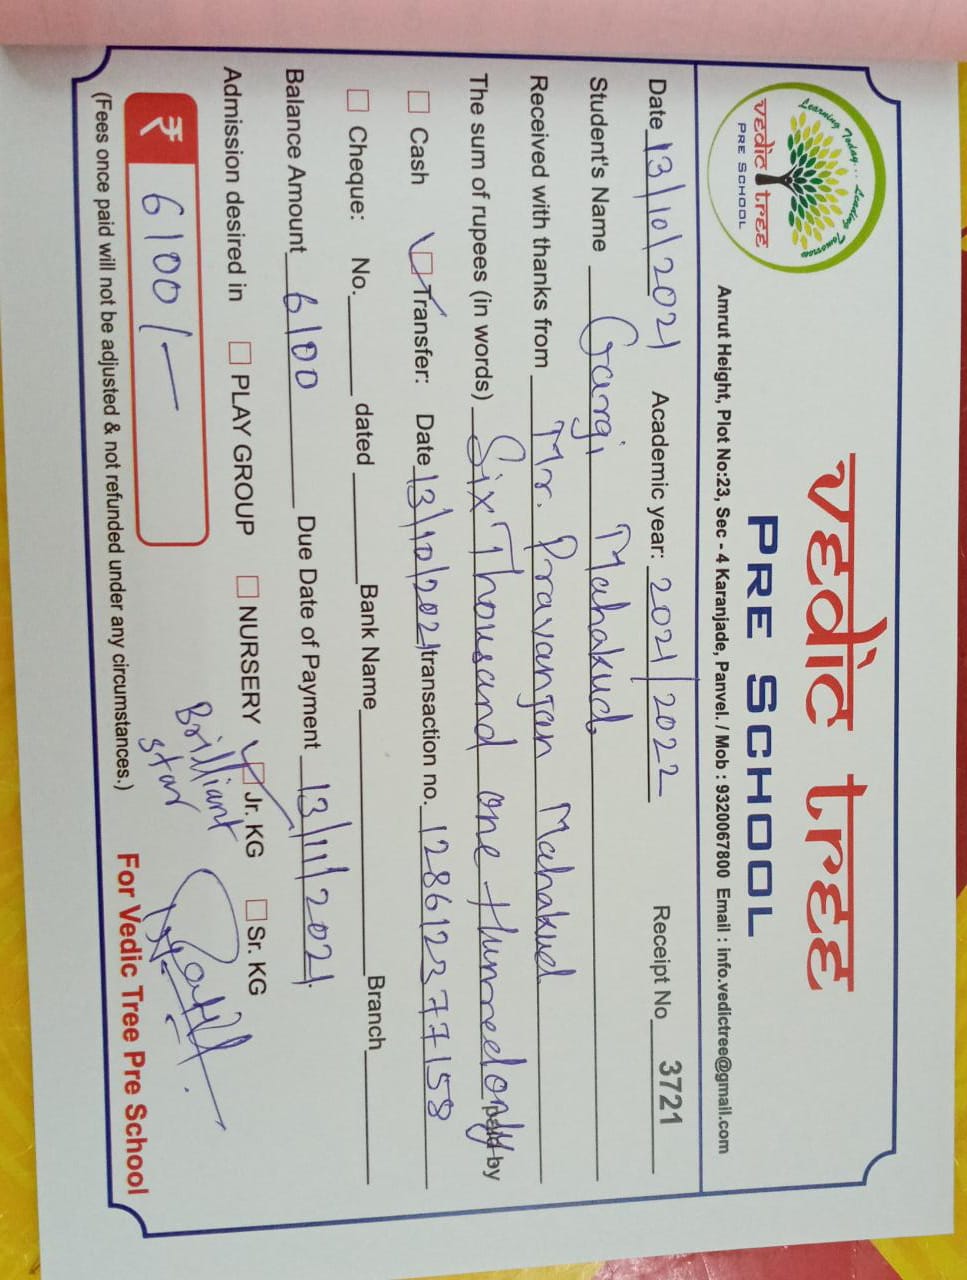 Learning Today... Leading Tomorrow
vedic tree
PRE SCHOOL
vedic tree
PRE SCHOOL
Amrut Height, Plot No:23, Sec - 4 Karanjade, Panvel. / Mob : 9320067800 Email : info.vedictree@gmail.com
Date 13/10/2021 Academic year: 2021/2022 Receipt No 3721
Student's Name Gargi Mahakud
Received with thanks from Mr. Pravanjan Mahakud
The sum of rupees (in words) Six Thousand one hunreed only paid by
Cash Transfer: Date 13/10/2021 transaction no. 128612377158
Cheque: No. dated Bank Name Branch
Balance Amount 6100 Due Date of Payment 13/11/2021.
Admission desired in PLAY GROUP NURSERY Jr. KG Sr. KG
Brilliant
star
₹ 6100/-
For Vedic Tree Pre School
(Fees once paid will not be adjusted & not refunded under any circumstances.)